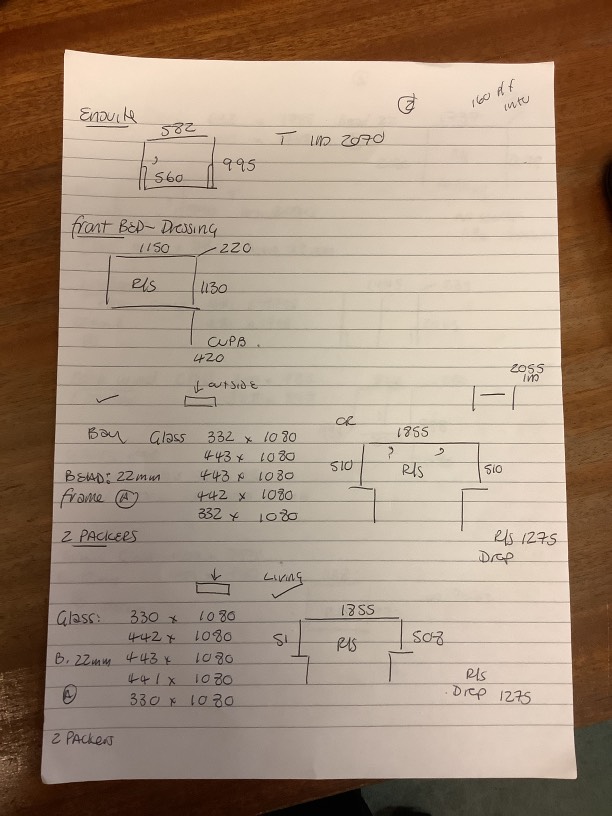 2
160 if
into
Ensuite
582
T IMD 2070
995
560
front BED - Dressing
1150 220
R/S
1130
CUPB.
420
↓ outside
2055
✓
OR
Bay Glass 332 x 1080
1855
443 x 1080
510 R/S 510
BEAD: 22mm 443 x 1080
frame A 442 x 1080
332 x 1080
2 PACKERS
R/S 1275
Drop
↓
Living
✓
Glass: 330 x 1080
1855
442 x 1080
51 R/S 508
B. 22mm 443 x 1080
441 x 1080
R/S
A 330 x 1080
Drop 1275
2 PACKERS